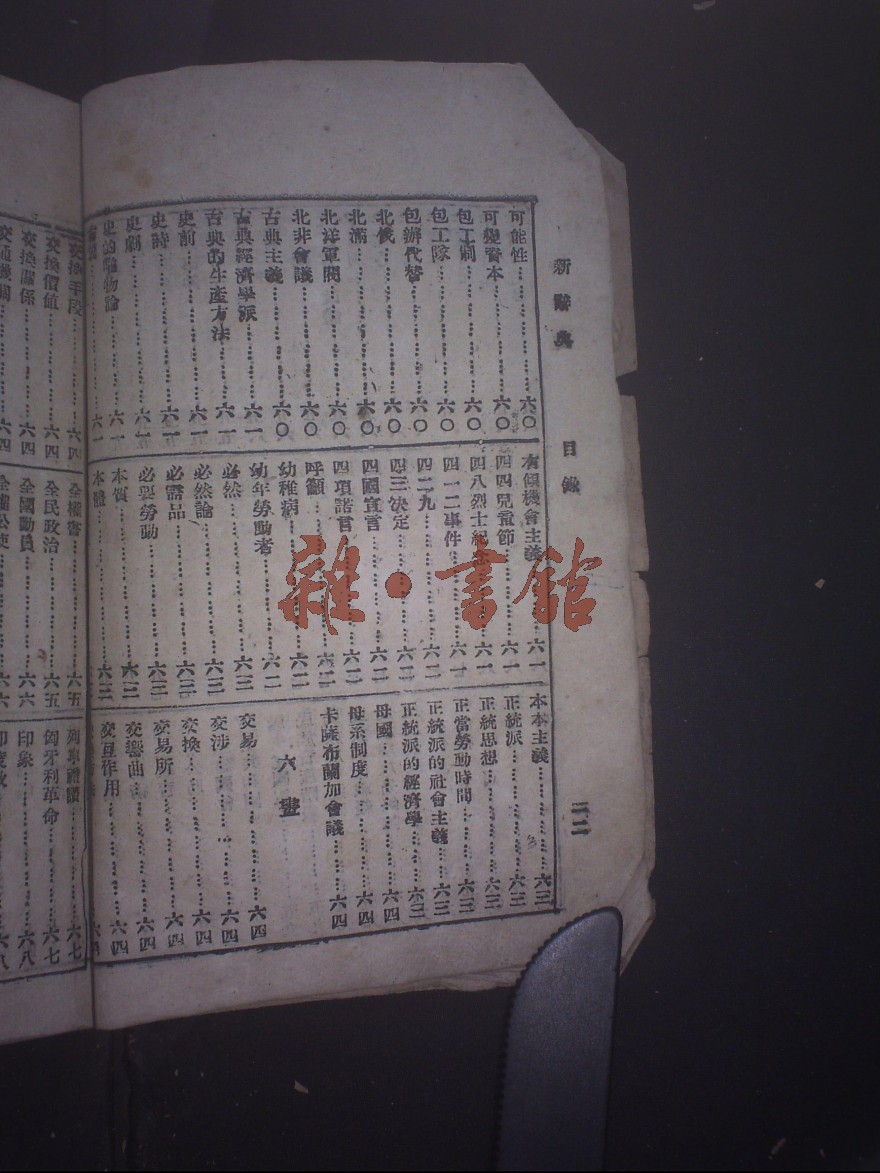 新辭典 目錄 二二
可能性……六〇
可變資本……六〇
包工制……六〇
包工隊……六〇
包辦代替……六〇
北俄……六〇
北滿……六〇
北洋軍閥……六〇
北非會議……六〇
古典主義……六〇
古典經濟學派……六一
古典的生產方法……六一
史前……六一
史詩……六一
史劇……六一
史的唯物論……六一
六一
右傾機會主義……六一
四四兒童節……六一
四八烈士紀念……六一
四一二事件……六一
四二九……六二
四三決定……六二
四國宣言……六二
四項諾言……六二
呼籲……六二
幼稚病……六二
幼年勞動者……六二
必然……六三
必然論……六三
必需品……六三
必要勞動……六三
本質……六三
本體……六三
本本主義……六三
正統派……六三
正統思想……六三
正當勞動時間……六三
正統派的社會主義……六三
正統派的經濟學……六三
母國……六四
母系制度……六四
卡薩布蘭加會議……六四
六畫
交易……六四
交涉……六四
交換……六四
交易所……六四
交響曲……六四
交互作用……六四
六四
交換手段……六四
交換價值……六四
交換關係……六四
交通機關……六四
全權書……六五
全民政治……六五
全國動員……六六
全權公使……六六
列寧……六七
匈牙利革命……六七
印象……六八
印度……六八
雜·書館